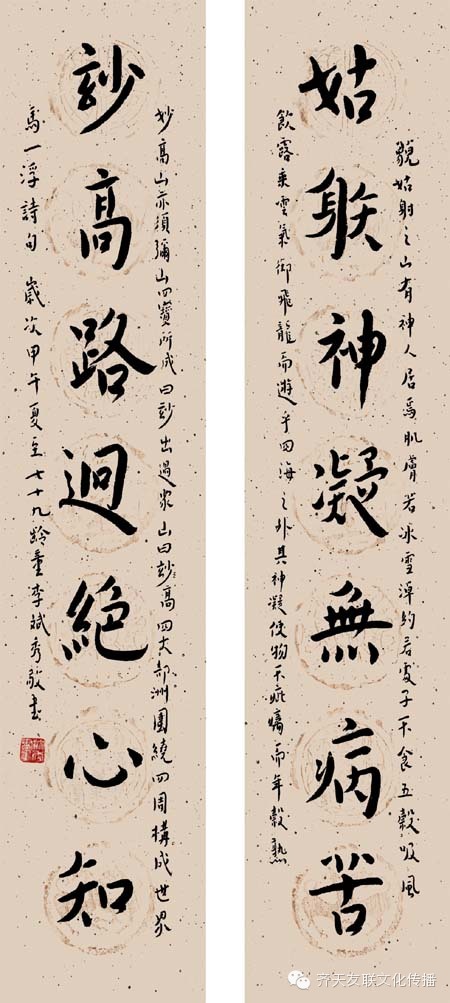 姑射神凝無病苦
藐姑射之山有神人居焉肌膚若冰雪淖約若處子不食五穀吸風
飲露乘雲氣御飛龍而遊乎四海之外其神凝使物不疵癘而年穀熟
玅高路迥絕心知
妙高山亦須彌山四寶所成曰玅出過眾山曰玅高四大部洲圍繞四周構成世界
馬一浮詩句 歲次甲午夏至七十九齡童李斌秀敬書
齐天友联文化传播